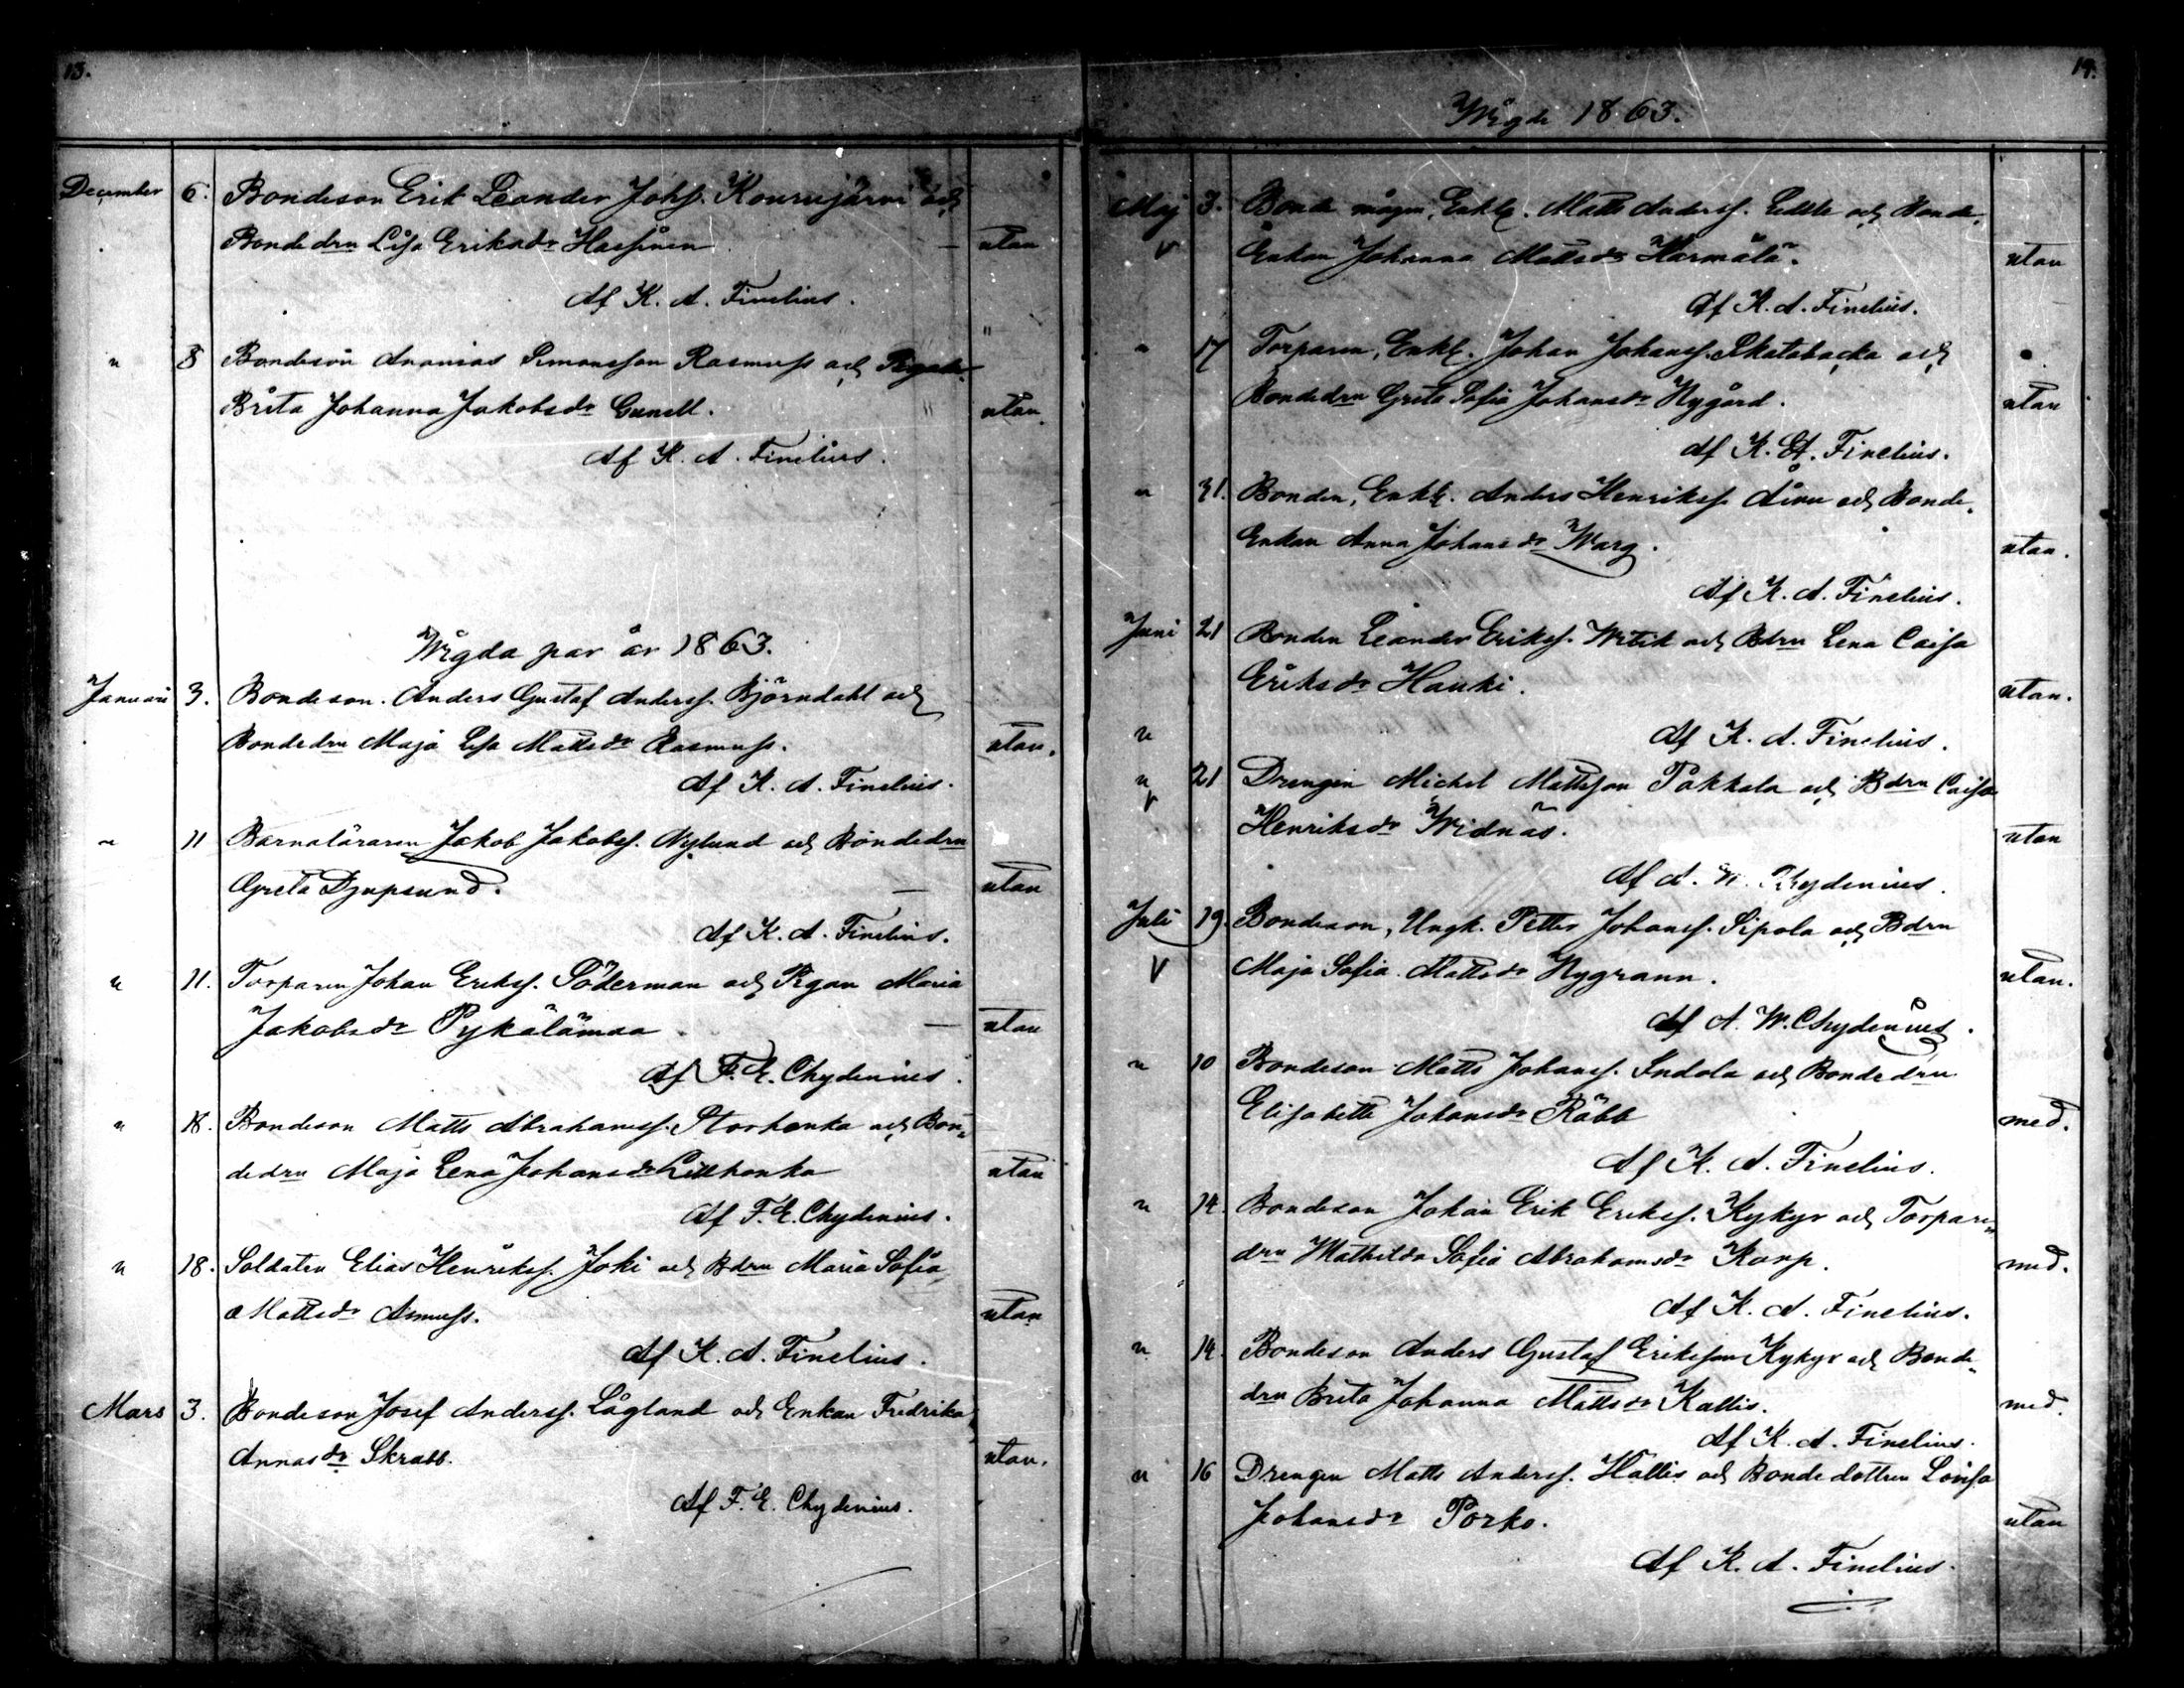 13.
December 6. Bondeson Erik Leander Johss. Kourujärvi och
Bondedrn Lisa Eriksdr Hassinen — utan
Af K. A. Finelius.
" 8 Bondeson Ananias Simonsson Rasmuss och Pigan
Brita Johanna Jakobsdr Gunell. utan.
Af K. A. Finelius.
Wigda par år 1863.
Januari 3. Bondeson. Anders Gustaf Anderss. Björndahl och
Bondedrn Maja Lisa Mattsdr Rasmuss. utan.
Af K. A. Finelius.
" 11 Barnaläraren Jakob Jakobss. Nylund och Bondedrn
Greta Djupsund. — utan
Af K. A. Finelius.
" 11. Torparen Johan Erikss. Söderman och Pigan Maria
Jakobsdr Pykälämaa. — utan
Af F. E. Chydenius.
" 18. Bondeson Matts Abrahamss. Storhonka och Bon-
dedrn Maja Lena Johansdr Lillhonka utan
Af F. E. Chydenius.
" 18. Soldaten Elias Henrikss. Joki och Bdrn Maria Sofia
Mattsdr Asmuss. utan
Af K. A. Finelius.
Mars 3. Bondeson Josef Anderss. Lågland och Enkan Fredrika
Annasdr Skrabb. utan.
Af F. E. Chydenius.
14.
Wigde 1863.
Maj 3. Bonde mågen, Enkl. Matts Anderss. och Bonde-
Enkan Johanna Mattsdr Härmälä. utan
Af K. A. Finelius.
" 17 Torparen, Enkl. Johan Johanss. Skatabacka och
Bondedrn Greta Sofia Johansdr Nygård. utan
Af K. A. Finelius.
" 31. Bonden, Enkl. Anders Henrikss. och Bonde-
Enkan Anna Johansdr Warg. utan.
Af K. A. Finelius.
Juni 21 Bonden Leander Erikss. Witik och Bdrn Lena Caisa
Eriksdr Hauki. utan.
" Af K. A. Finelius.
" 21 Drengen Michel Mattsson Pakkala och Bdrn Caisa
Henriksdr Widnäs. utan
Af A. W. Chydenius.
Juli 19. Bondeson, Ungk. Petter Johanss. Sipola och Bdrn
Maja Sofia Mattsdr Nygrann. utan.
Af A. W. Chydenius.
" 10 Bondeson Matts Johanss. Indola och Bondedrn
Elisabetta Johansdr Räbb med.
Af K. A. Finelius.
" 14. Bondeson Johan Erik Erikss. Kykyr och Torpare-
drn Mathilda Sofia Abrahamsdr Karp. med.
Af K. A. Finelius.
" 14. Bondeson Anders Gustaf Eriksson Kykyr och Bonde-
drn Brita Johanna Mattsdr Kallis. med.
Af K. A. Finelius.
" 16 Drengen Matts Anderss. Hallis och Bonde dottren Lovisa
Johansdr Porko. utan
Af K. A. Finelius.